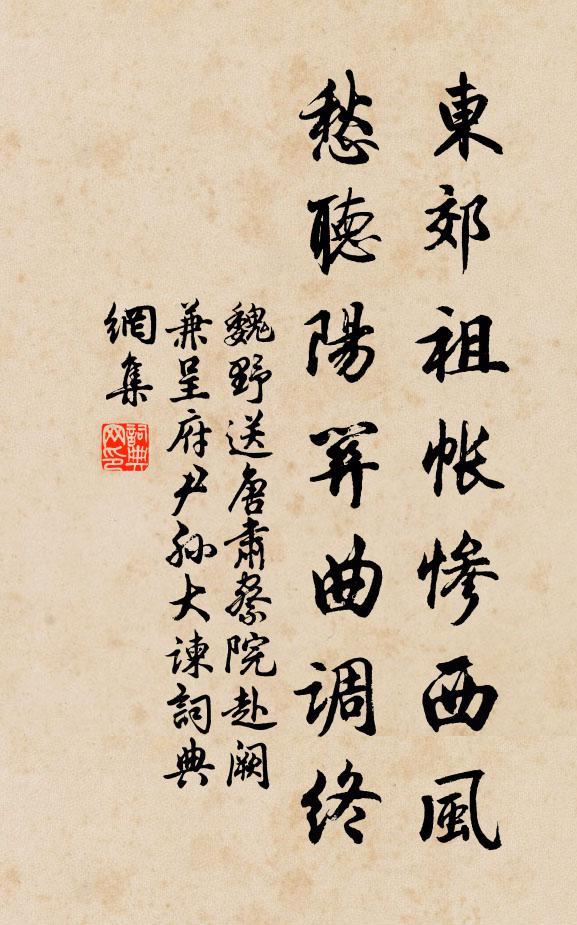 東郊祖帳慘西風
愁聽陽關曲調終
魏野送唐肅察院赴闕
兼呈府尹孫大諫詞典
網集
詞典
网印